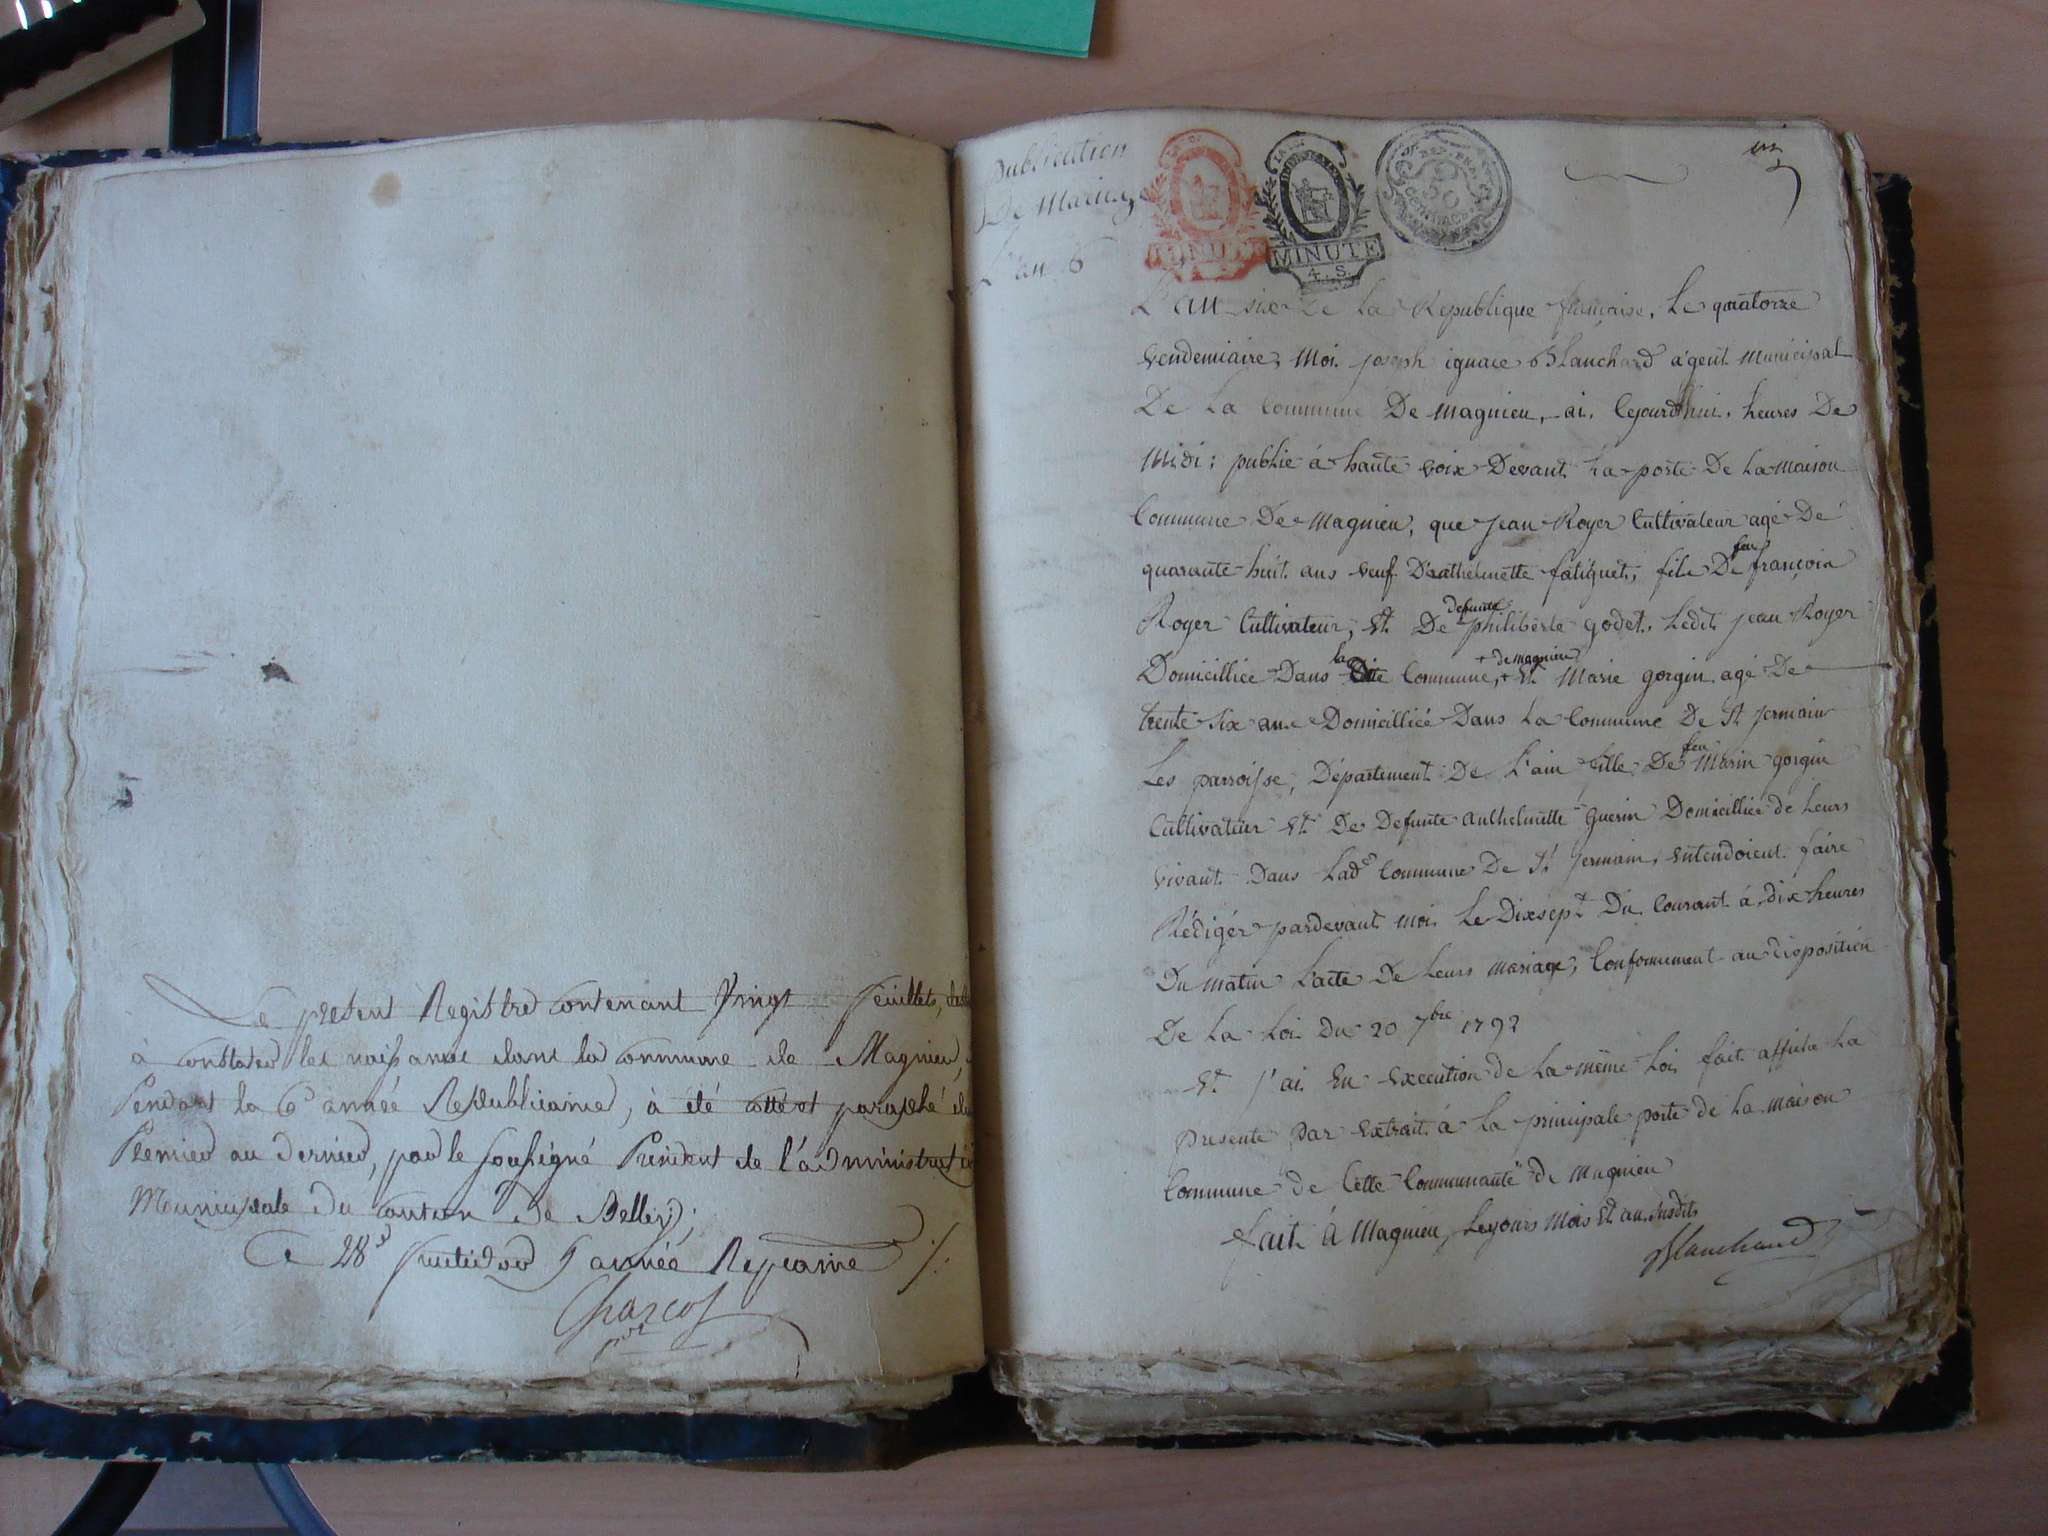 Le present Registre contenant Vingt feuillets,
à constater les naissance dans la commune de Magnieu,
Pendant la 6e année Republicaine, à été cotté et paraphé du
Premier au dernier, par le soussigné President de l'administration
Municipale du canton de Belley;
Ce 28 fructidor 5 année Repcaine ./.
Charcot
Publication
De Mariage
L'an 6
MINUTE
MINUTE
4. S.
50
CENTIMES
L'an six de la Republique française, le quatorze
vendemiaire, moi joseph ignace Blanchard agent municipal
De la commune De magnieu, ai, cejourd'hui, heures De
Midi: publie á haute voix Devant la porte De la maison
Commune De magnieu, que jean Royer Cultivateur agé De
quarante-huit ans veuf D'anthelmette fatiguet, fils De feu françois
Royer Cultivateur, et De defunte philiberte godet, ledit jean Royer
Domicilliée Dans la Dite Commune, + de magnieu + et Marie gorgin agé De
trente six ans Domicilliée Dans la Commune De St jermain
Les parroisse, Département De L'ain fille De feu Marin gorgin
Cultivateur et De Defunte anthelmette guerin Domicilliée de leurs
vivant Dans lade Commune De St jermain, entendoient faire
Rédigér pardevant moi le Dixsept Du courant á dix heures
Du matin l'acte De leurs mariage, Conformement au disposition
De la Loi Du 20 7bre 1792
et j'ai en execution de la même loi fait affiche la
presente par extrait á la principale porte de la maison
Commune de Cette Communauté de magnieu
fait á Magnieu, les jours mois et an susdits
Blanchard